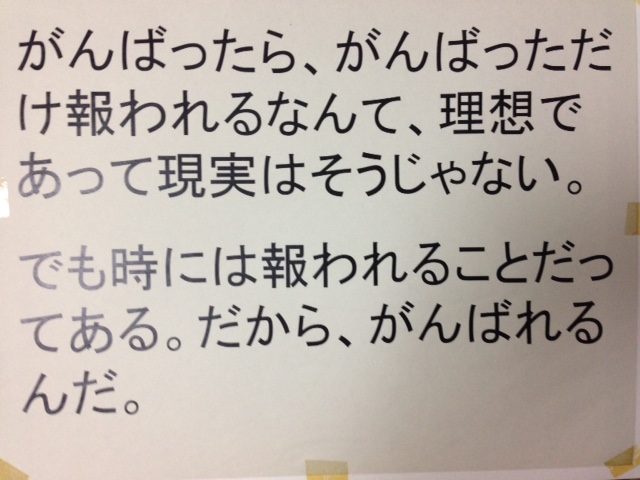 がんばったら、がんばっただ
け報われるなんて、理想で
あって現実はそうじゃない。
でも時には報われることだっ
てある。だから、がんばれる
んだ。